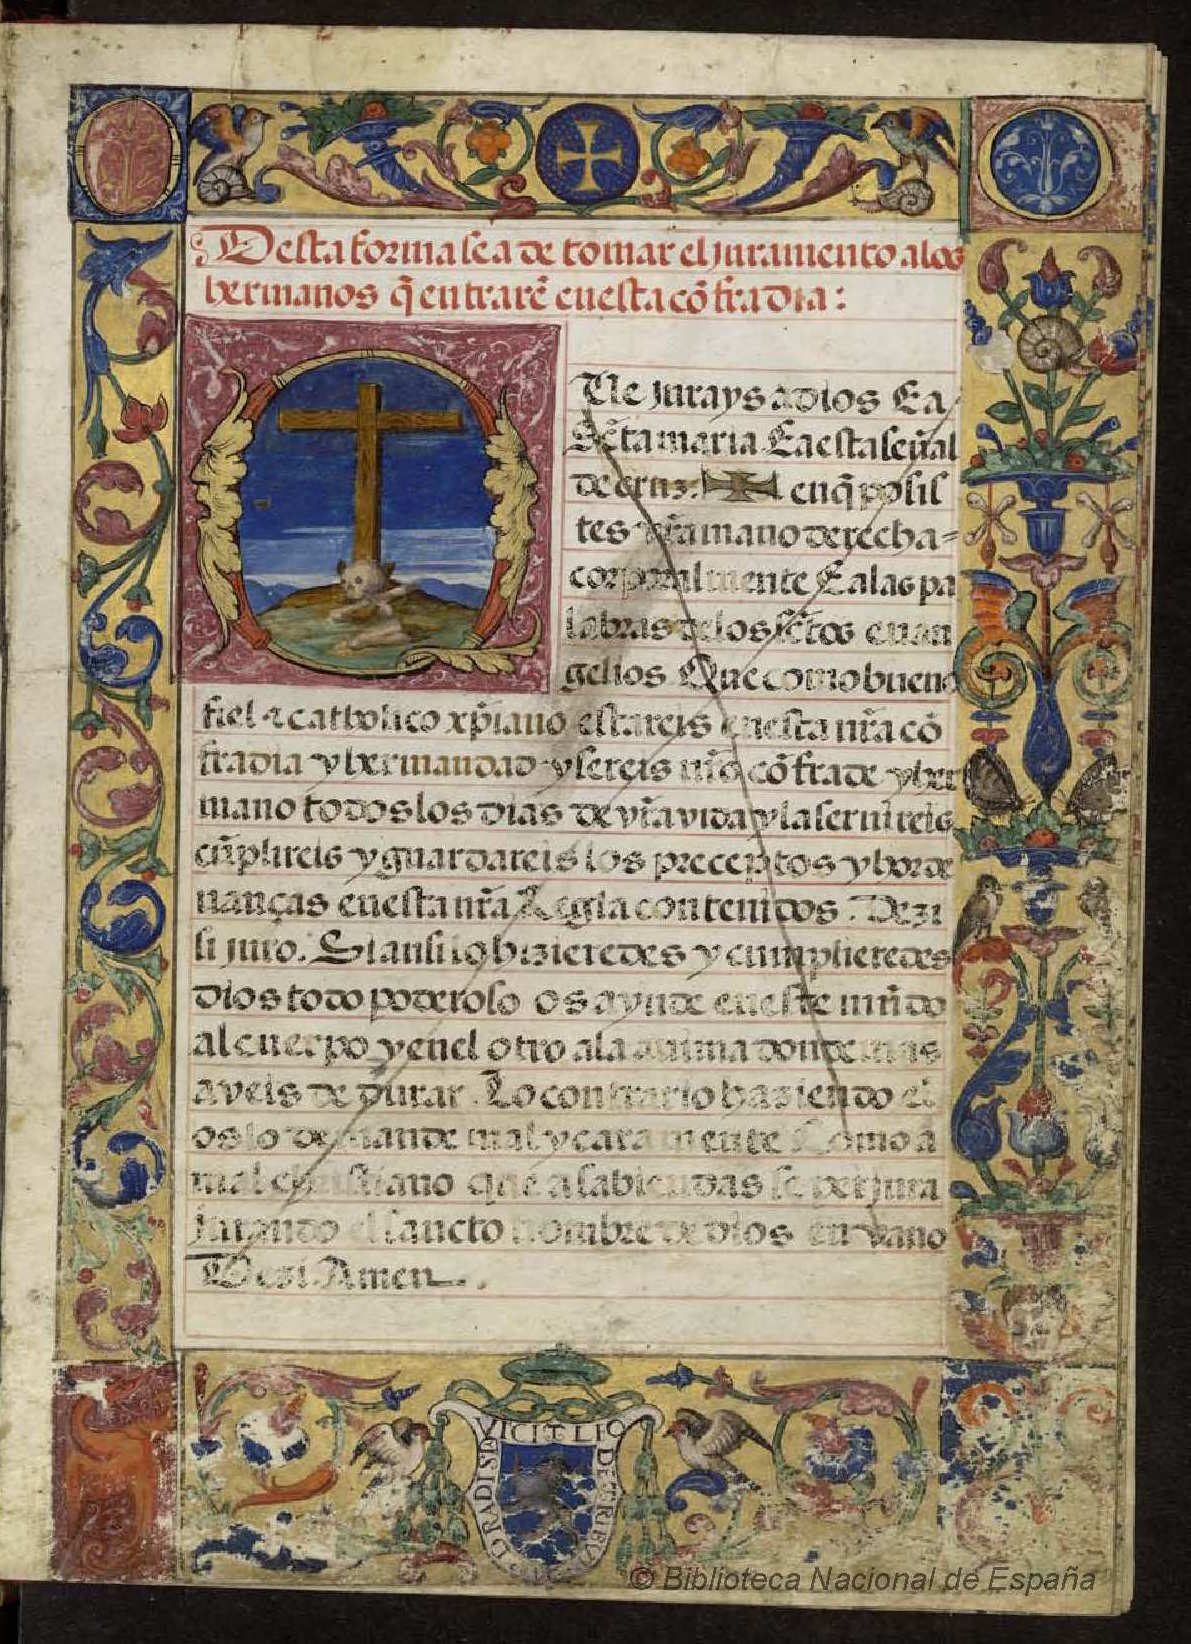 Desta forma se a de tomar el juramento alos
hermanos q̃ entrarẽ enesta cõfradia:
Ue jurays a dios E a
Sc̃ta maria. E a esta señal
de cruz. ✠ en q̃ posis
tes vr̃a mano derecha
corporalmente E alas pa
labras delos sc̃tos euan
gelios. Que como bueno
fiel ⁊ catholico xp̃iano estareis enesta nr̃a cõ
fradia y hermandad y sereis nr̃o cõfrade y her
mano todos los dias de vr̃a vida y la seruireis
cũplireis y guardareis los preceptos y horde
nanças enesta nr̃a Regla contenidos. Dezi
si juro. Si ansi lo hizieredes y cumplieredes
dios todo poderoso os ayude eneste mũdo
al cuerpo y enel otro ala anima donde mas
aveis de durar. Lo contrario haziendo el
os lo demande mal y caramente Como a
mal christiano que a sabiendas se perjura
jurando el sancto nombre de dios en vano
Dezi. Amen.
VICIT LEO DE TRIBV
D RADI SE
© Biblioteca Nacional de España